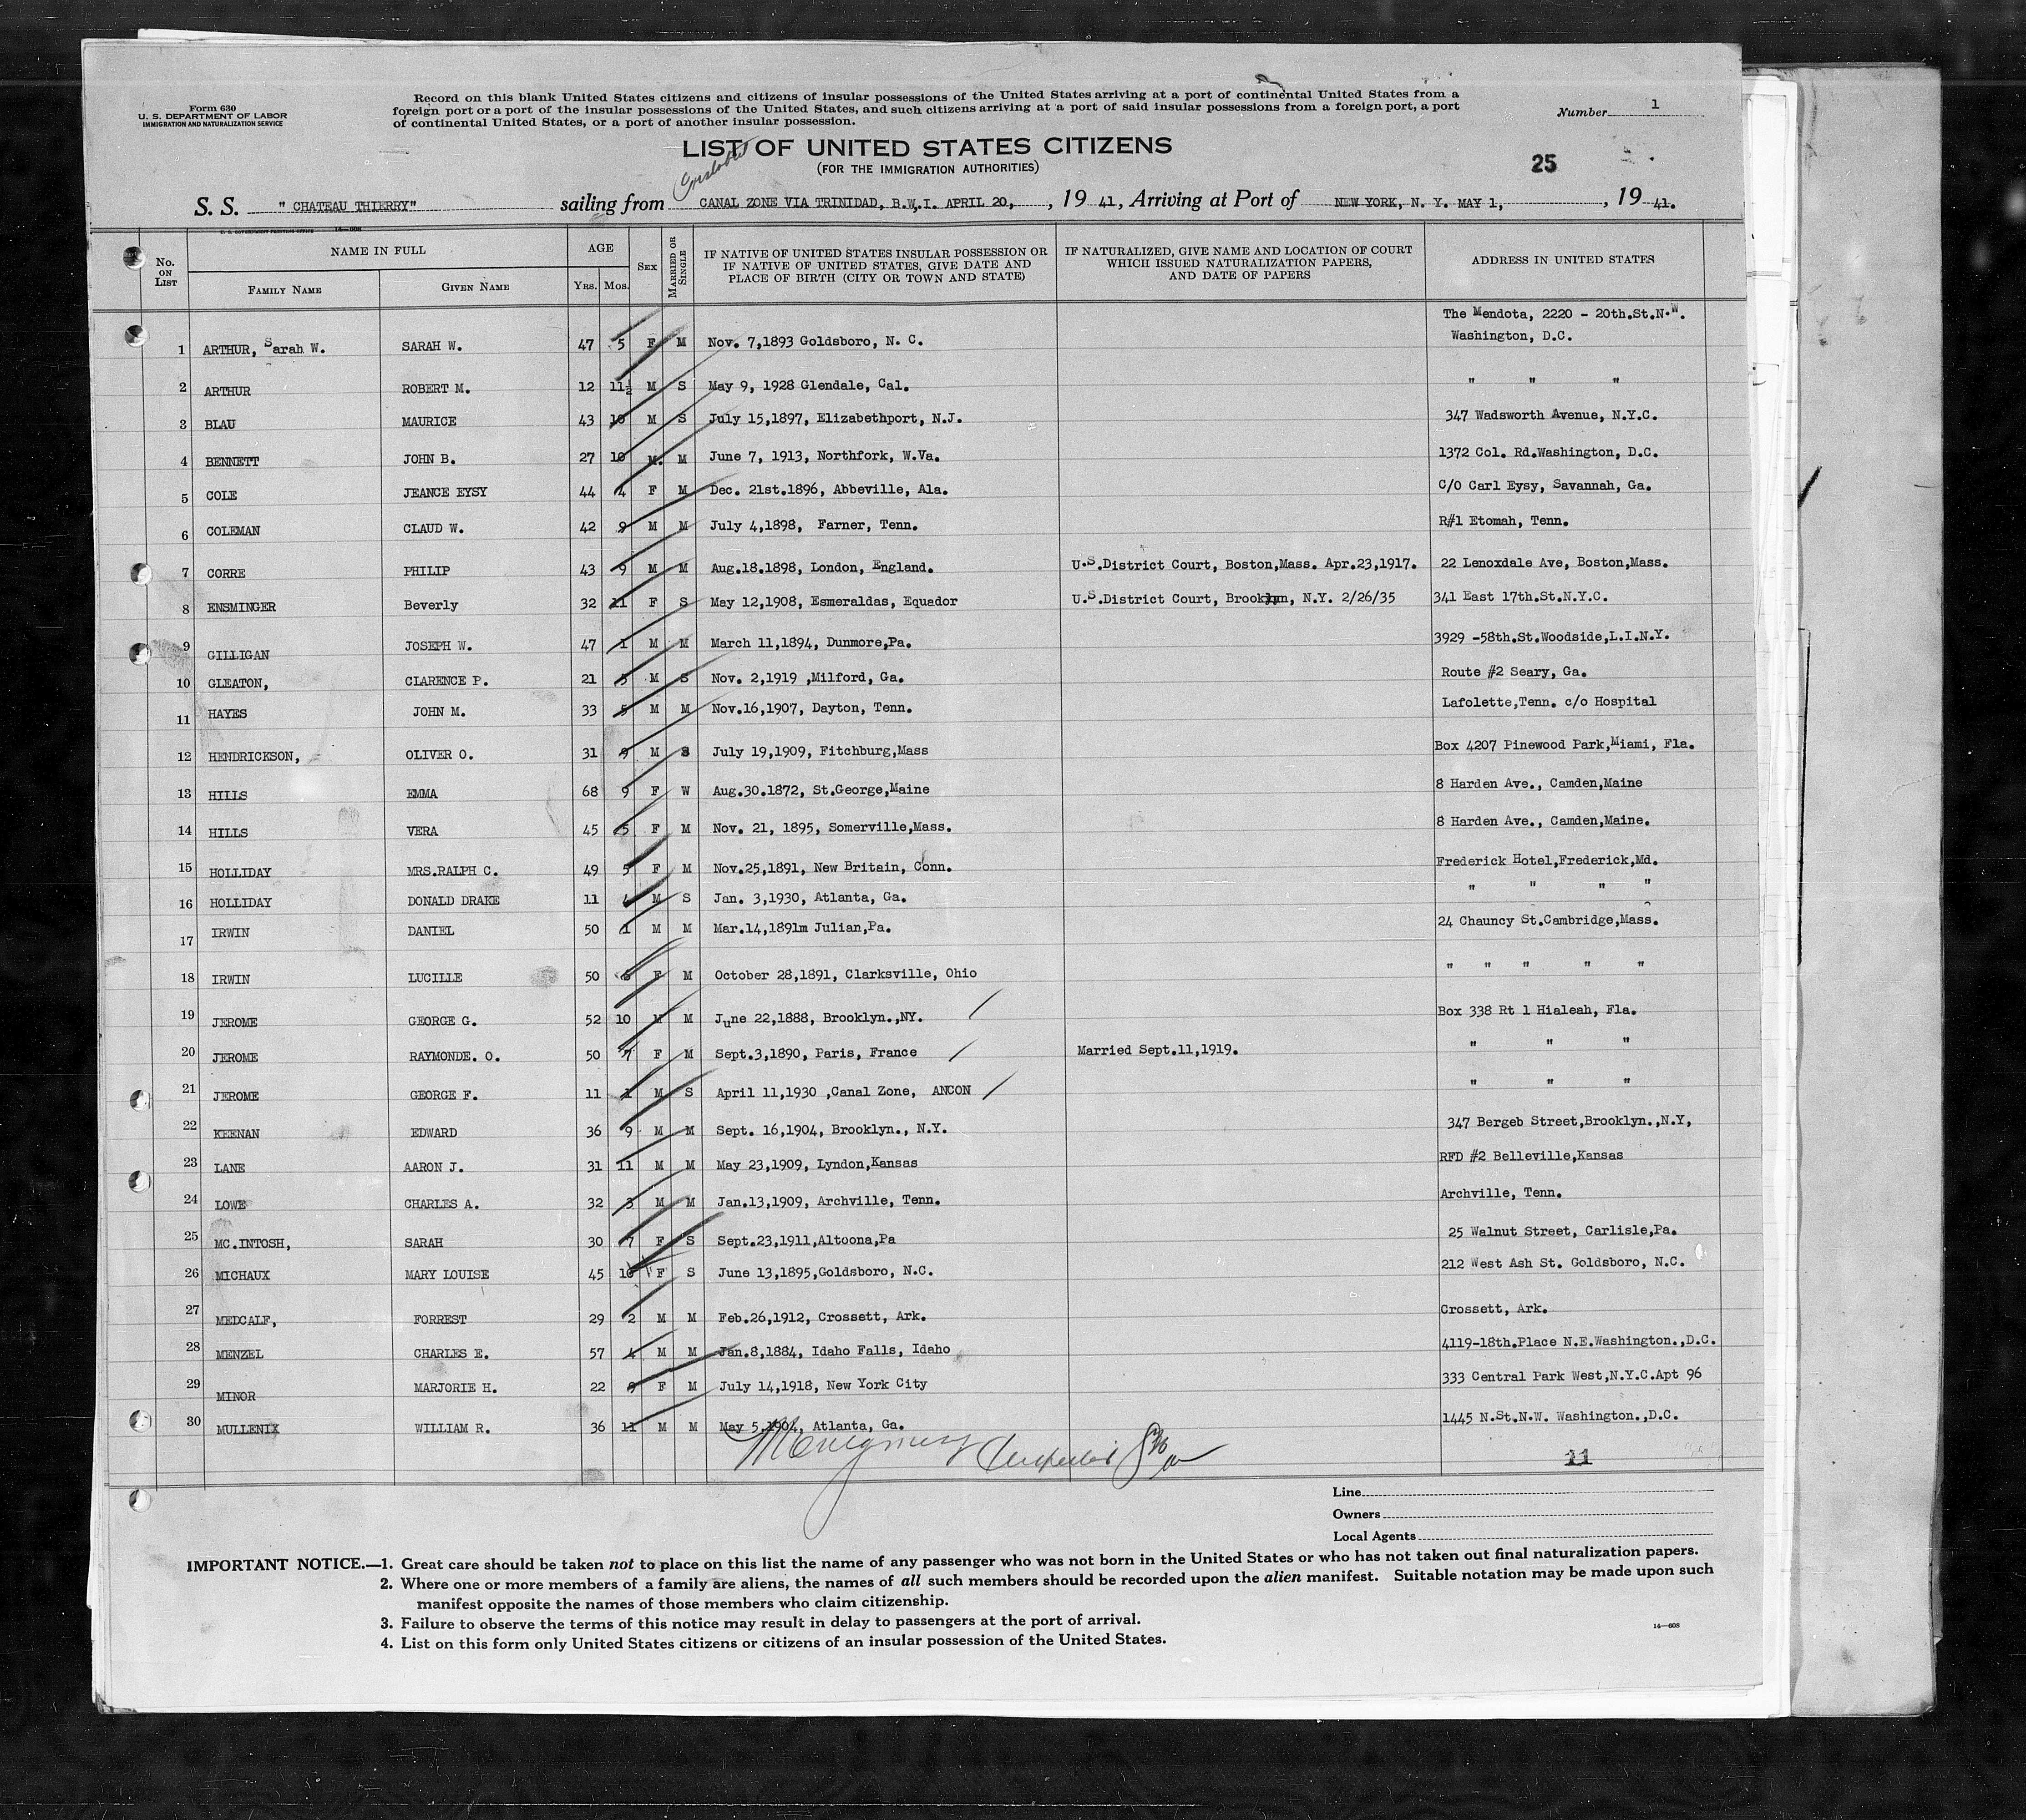 Form 630
U. S. DEPARTMENT OF LABOR
IMMIGRATION AND NATURALIZATION SERVICE
Record on this blank United States citizens and citizens of insular possessions of the United States arriving at a port of continental United States from a
foreign port or a port of the insular possessions of the United States, and such citizens arriving at a port of said insular possessions from a foreign port, a port
of continental United States, or a port of another insular possession.
Number 1
LIST OF UNITED STATES CITIZENS
(FOR THE IMMIGRATION AUTHORITIES)
25
S. S. " CHATEAU THIERRY" sailing from Cristobal CANAL ZONE VIA TRINIDAD, B.W.I. APRIL 20, , 19 41, Arriving at Port of NEW YORK, N. Y. MAY 1, , 19 41.
U. S. GOVERNMENT PRINTING OFFICE 14—608
No. ON LIST NAME IN FULL FAMILY NAME GIVEN NAME AGE YRS. MOS. SEX MARRIED OR SINGLE IF NATIVE OF UNITED STATES INSULAR POSSESSION OR IF NATIVE OF UNITED STATES, GIVE DATE AND PLACE OF BIRTH (CITY OR TOWN AND STATE) IF NATURALIZED, GIVE NAME AND LOCATION OF COURT WHICH ISSUED NATURALIZATION PAPERS, AND DATE OF PAPERS ADDRESS IN UNITED STATES
The Mendota, 2220 - 20th.St.N.W.
1 ARTHUR, Sarah W. SARAH W. 47 5 F M Nov. 7,1893 Goldsboro, N. C. Washington, D.C.
2 ARTHUR ROBERT M. 12 11½ M S May 9, 1928 Glendale, Cal. " " "
3 BLAU MAURICE 43 10 M S July 15,1897, Elizabethport, N.J. 347 Wadsworth Avenue, N.Y.C.
4 BENNETT JOHN B. 27 10 M. M June 7, 1913, Northfork, W.Va. 1372 Col. Rd.Washington, D.C.
5 COLE JEANCE EYSY 44 4 F M Dec. 21st.1896, Abbeville, Ala. C/O Carl Eysy, Savannah, Ga.
6 COLEMAN CLAUD W. 42 9 M M July 4,1898, Farner, Tenn. R#1 Etomah, Tenn.
7 CORRE PHILIP 43 9 M M Aug.18.1898, London, England. U.S.District Court, Boston,Mass. Apr.23,1917. 22 Lenoxdale Ave, Boston,Mass.
8 ENSMINGER Beverly 32 11 F S May 12,1908, Esmeraldas, Equador U.S.District Court, Brooklyn, N.Y. 2/26/35 341 East 17th.St.N.Y.C.
9 GILLIGAN JOSEPH W. 47 1 M M March 11,1894, Dunmore,Pa. 3929 -58th.St.Woodside,L.I.N.Y.
10 GLEATON, CLARENCE P. 21 5 M S Nov. 2,1919 ,Milford, Ga. Route #2 Seary, Ga.
11 HAYES JOHN M. 33 5 M M Nov.16,1907, Dayton, Tenn. Lafolette,Tenn. c/o Hospital
12 HENDRICKSON, OLIVER O. 31 9 M S July 19,1909, Fitchburg,Mass Box 4207 Pinewood Park,Miami, Fla.
13 HILLS EMMA 68 9 F W Aug.30.1872, St.George,Maine 8 Harden Ave., Camden,Maine
14 HILLS VERA 45 5 F M Nov. 21, 1895, Somerville,Mass. 8 Harden Ave., Camden,Maine.
15 HOLLIDAY MRS.RALPH C. 49 5 F M Nov.25,1891, New Britain, Conn. Frederick Hotel,Frederick,Md.
16 HOLLIDAY DONALD DRAKE 11 4 M S Jan. 3,1930, Atlanta, Ga. " " " "
17 IRWIN DANIEL 50 1 M M Mar.14,1891m Julian,Pa. 24 Chauncy St.Cambridge,Mass.
18 IRWIN LUCILLE 50 6 F M October 28,1891, Clarksville, Ohio " " " " "
19 JEROME GEORGE G. 52 10 M M June 22,1888, Brooklyn.,NY. / Box 338 Rt 1 Hialeah, Fla.
20 JEROME RAYMONDE. O. 50 7 F M Sept.3,1890, Paris, France / Married Sept.11,1919. " " "
21 JEROME GEORGE F. 11 1 M S April 11,1930 ,Canal Zone, ANCON / " " "
22 KEENAN EDWARD 36 9 M M Sept. 16,1904, Brooklyn., N.Y. 347 Bergeb Street,Brooklyn.,N.Y,
23 LANE AARON J. 31 11 M M May 23,1909, Lyndon,Kansas RFD #2 Belleville,Kansas
24 LOWE CHARLES A. 32 3 M M Jan.13,1909, Archville, Tenn. Archville, Tenn.
25 MC.INTOSH, SARAH 30 7 F S Sept.23,1911,Altoona,Pa 25 Walnut Street, Carlisle,Pa.
26 MICHAUX MARY LOUISE 45 10 F S June 13,1895,Goldsboro, N.C. 212 West Ash St. Goldsboro, N.C.
27 MEDCALF, FORREST 29 2 M M Feb.26,1912, Crossett, Ark. Crossett, Ark.
28 MENZEL CHARLES E. 57 4 M M Jan.8,1884, Idaho Falls, Idaho 4119-18th.Place N.E.Washington.,D.C.
29 MINOR MARJORIE H. 22 9 F M July 14,1918, New York City 333 Central Park West,N.Y.C.Apt 96
30 MULLENIX WILLIAM R. 36 11 M M May 5,1904, Atlanta, Ga. 1445 N.St.N.W. Washington.,D.C.
Montgomery
11
Line
Owners
Local Agents
IMPORTANT NOTICE.—1. Great care should be taken not to place on this list the name of any passenger who was not born in the United States or who has not taken out final naturalization papers.
2. Where one or more members of a family are aliens, the names of all such members should be recorded upon the alien manifest. Suitable notation may be made upon such
manifest opposite the names of those members who claim citizenship.
3. Failure to observe the terms of this notice may result in delay to passengers at the port of arrival.
4. List on this form only United States citizens or citizens of an insular possession of the United States.
14—608